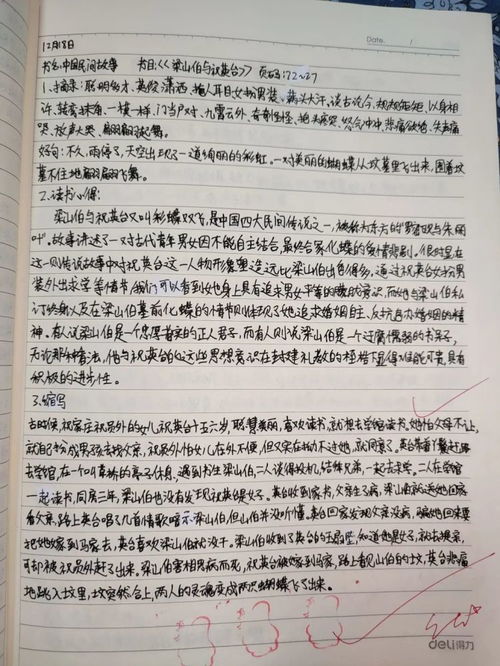 Date.
12月18日
书名:中国民间故事 书目:《梁山伯与祝英台》 页码:72~27
1、摘录:聪明多才、英俊潇洒、掩人耳目、女扮男装、满头大汗、谈古论今、规规矩矩、以身相
许、转弯抹角、一模一样、门当户对、九霄云外、奇形怪怪、抱头痛哭、怒气冲冲、悲痛欲绝、失声痛
哭、放声大哭、翩翩起舞。
好句:不久,雨停了,天空出现了一道绚丽的彩虹。一对美丽的蝴蝶从坟墓里飞出来,围着坟
墓不住地翩翩飞舞。
2.读书心得:
梁山伯与祝英台又叫彩蝶双飞,是中国四大民间传说之一,被称为东方的"罗密欧与朱丽
叶"。故事讲述了一对古代青年男女因不能自主结合,最终台冢化蝶的爱情悲剧。很明显在
这一则传说故事中对祝英台这一人物形象塑造远比梁山伯出色得多。通过祝英台女扮男
装外出求学等情节我们可以看到她身上具有追求男女平等的朦胧意识,而她与梁山伯私
订终身以及在梁山伯墓前化蝶的情节则体现了她追求婚姻自主、反抗包办婚姻的精
神。有人说梁山伯是个忠厚善美的正人君子,而有人则说梁山伯是一个迂腐懦弱的书呆子,
无论那种看法,他与祝英台的这些思想意识在封建礼教的桎梏下显得难能可贵,具有
积极的进步性。
3.缩写
古时候,祝家庄祝员外的女儿祝英台十五六岁,聪慧美丽,喜欢读书,就想去学馆读书,她怕父母不让,
就自己扮成男孩去找父亲,祝员外怕女儿在外不便,但又实在拗不过她,就同意了。英台带着丫鬟赶路
去学馆,在一个叫草桥的亭子休息,遇到书生梁山伯,二人谈得投机,结拜兄弟,一起去求学。二人在学馆
一起读书,同房三年,梁山伯也没有发现祝英台是女子。英台收到家书,父亲生了病,梁山伯就送她回家
看父亲,路上英台唱了几首情歌暗示梁山伯,但山伯并没听懂。英台回家发现父亲没病,骗她回来要
把她嫁到马家去,英台喜欢梁山伯就没干。梁山伯收到了英台的玉扇坠,知道她是女子,就去提亲,
可却被祝员外赶了出来。梁山伯害相思病而死,祝英台被嫁到马家,路上看见山伯的坟,英台悲痛
地跳入坟里,坟突然合上,两人的灵魂变成两只蝴蝶飞了出来。
deli得力